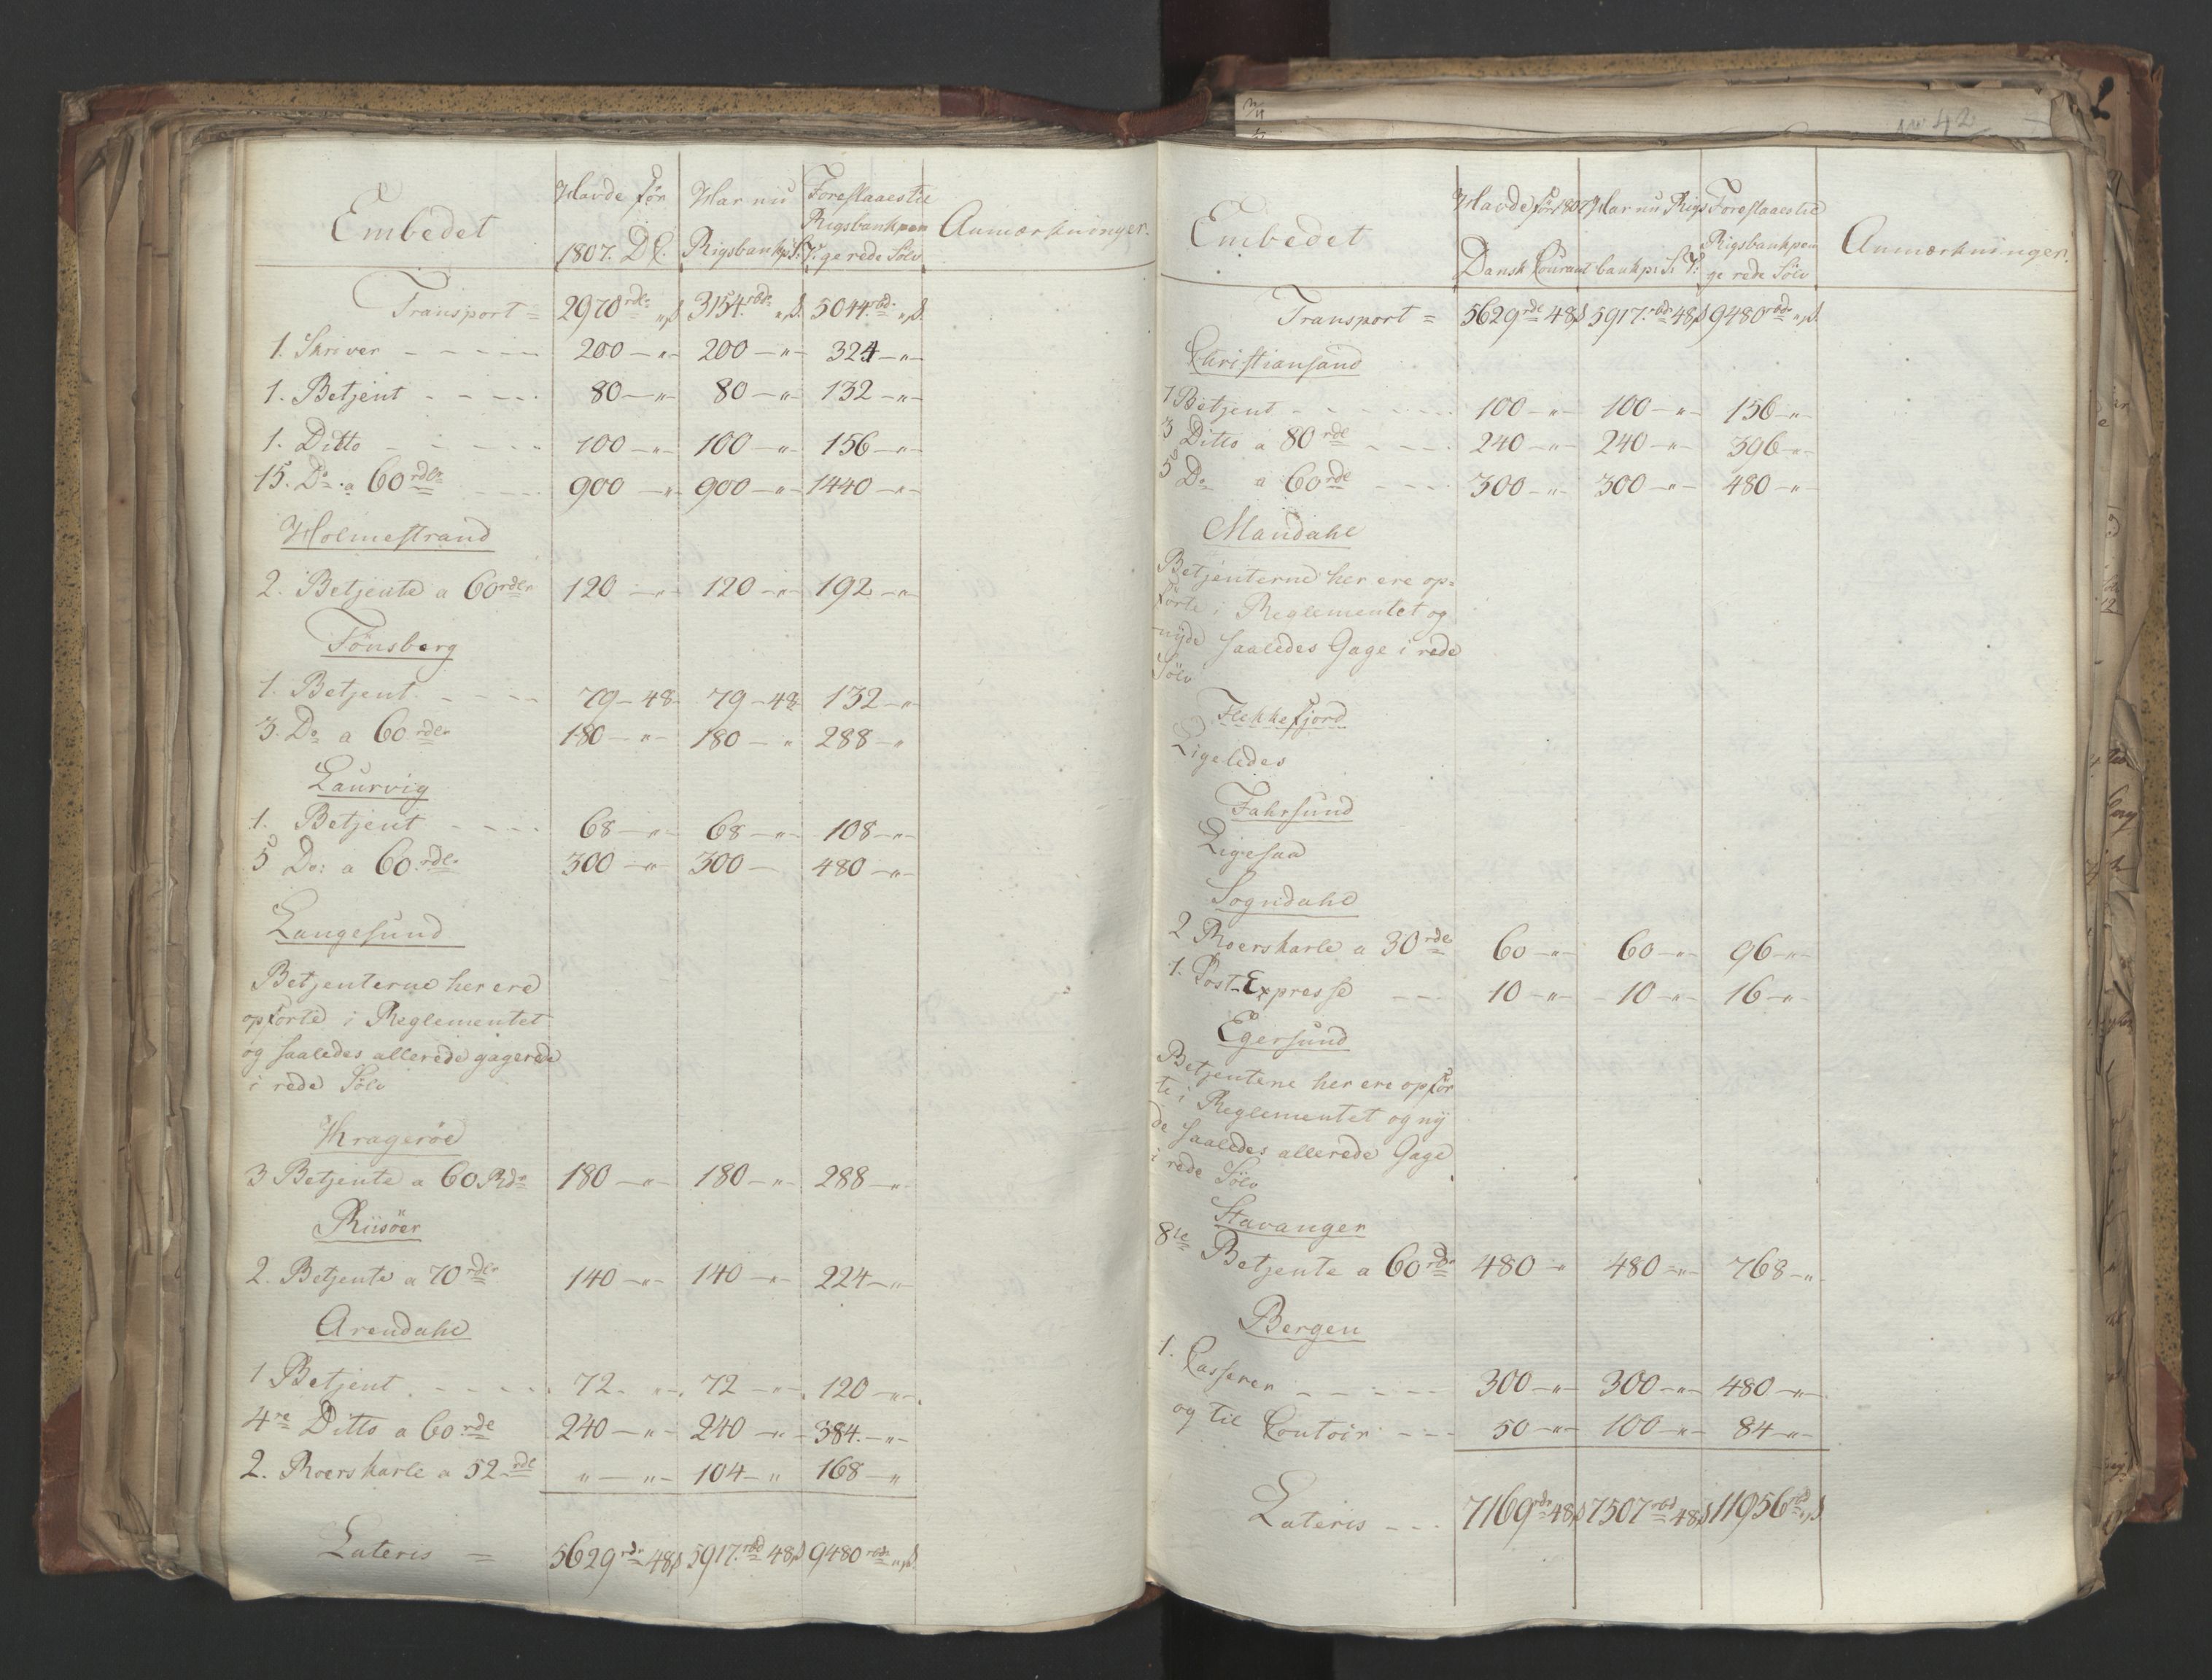 Embedet | Havde før 1807. D C. | Har nu Rigsbankp. S. V. | Foreslaaes til Rigsbankpenge rede Sölv | Anmærkninger.
Transport = 2970 rdl „ ß | 3154. rbd „ ß. | 5044. rbd „ ß.
1. Skriver - - - - 200 -„- | 200 -„- | 324 -„-
1. Betjent - - - - 80 -„- | 80 -„- | 132 -„-
1. Ditto - - - - 100 -„- | 100 -„- | 156 -„-
15. Do. a 60 rdlr - - 900 -„- | 900 -„- | 1440 -„-
Holmestrand
2. Betjente a 60 rdlr 120 -„- | 120 -„- | 192 -„-
Tönsberg
1. Betjent - - - - 79 - 48 - | 79 - 48 | 132 -„-
3. Do a 60 rdlr 180 -„- | 180 - „ | 288 -„
Laurvig
1. Betjent - - - - 68 -„- | 68 -„- | 108 -„-
5 Do: a 60. rdlr 300 -„- | 300 - | 480 -„-
Langesund
Betjenterne her ere
opförte i Reglementet
og saaledes allerede gagerede
i rede Sölv
Krageröe
3 Betjente a 60 Rdr 180 -„- | 180 -„- | 288 -„-
Riisöer
2. Betjente a 70 rdlr 140 -„- | 140 -„- | 224 -„-
Arendahl
1 Betjent. - - - - 72. „ | 72 -„- | 120 -„-
4re Ditto a 60 rdl 240 -„- | 240 -„- | 384. -„-
2. Roerskarle a 52 rdl „ - „ - | 104 - „ | 168 -„
Lateris = 5629 rdr 48 ß | 5917. rbd 48 ß | 9480 rbd „ ß.
No 42
Embedet | Havde för 1807 Dansk Courant | Har nu Rigsbankp: S: V: | Foreslaaes til Rigsbankpenge rede Sölv | Anmærkninger.
Transport = 5629 rdl 48 ß | 5917. rbd 48 ß | 9480 rbd „ ß.
Christiansand
1 Betjent - - - - 100 -„- | 100 -„- | 156 -„-
3 Ditto a 80 rdl - - - 240 -„- | 240 -„- | 396 -„-
5 Do a 60 rdl - - - 300 -„- | 300 -„- | 480 -„-
Mandahl
Betjenterne her ere op=
förte i Reglementet og
nÿde saaledes Gage i rede
Sölv
Flekkefjord
Ligeledes
Fahrsund
Ligesaa
Sogndahl
2 Roerskarle a 30 rdl 60 -„- | 60 -„- | 96 -„-
1. Post-Expresse - - 10 -„- | 10 -„- | 16 -„-
Egersund
Betjentene her ere opför
te i Reglementet og nÿ
de saaledes allerede Gage
i rede Sölv
Stavanger
8te Betjente a 60 rdr 480 -„ | 480 -„- | 768 -„-
Bergen
1. Casserer - - - - 300 -„- | 300 -„- | 480 -„-
og til Contoir - - - 50 -„- | 100 -„- | 84 -„-
Lateris - - - 7169 rdr 48 ß | 7507 rbd 48 ß | 11956 rbd „ ß.